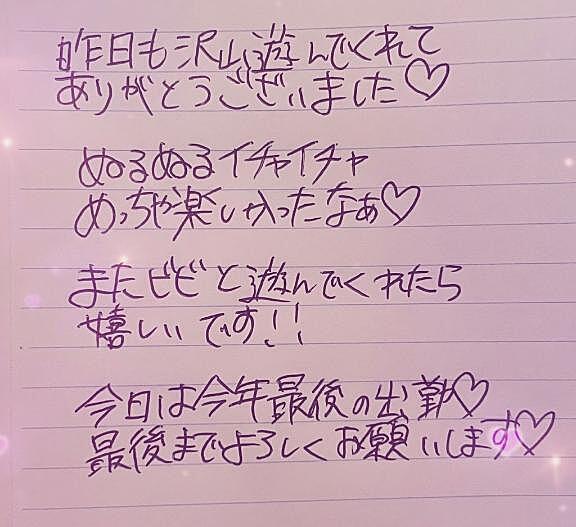 昨日も沢山遊んでくれて
ありがとうございました♡
ぬるぬるイチャイチャ
めっちゃ楽しかったなぁ♡
またビビと遊んでくれたら
嬉しいです!!
今日は今年最後の出勤♡
最後までよろしくお願いします♡